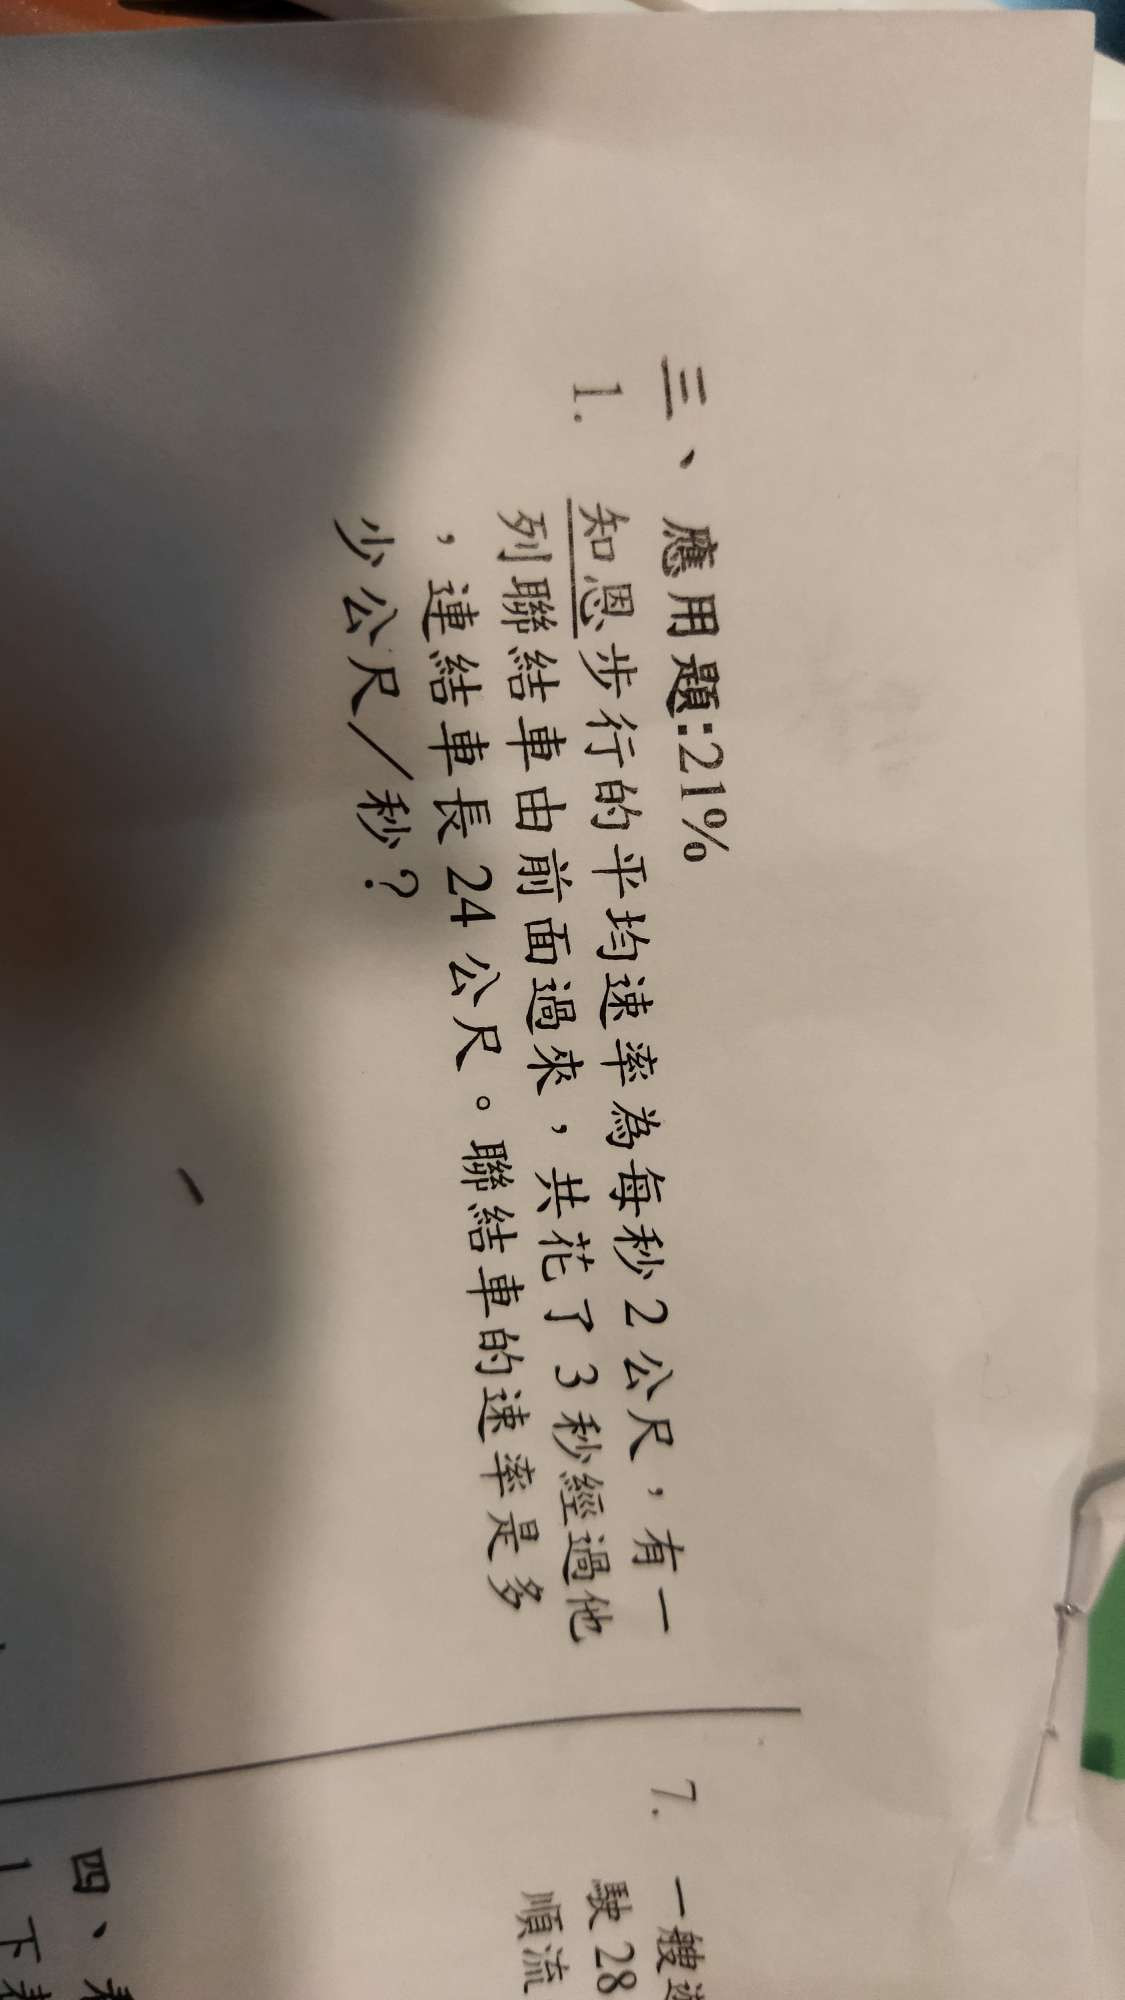 三、應用題:21%
1. 知恩步行的平均速率為每秒2公尺，有一
列聯結車由前面過來，共花了3秒經過他
，連結車長24公尺。聯結車的速率是多
少公尺／秒？
7. 一艘
駛28
順流
四、
1 下